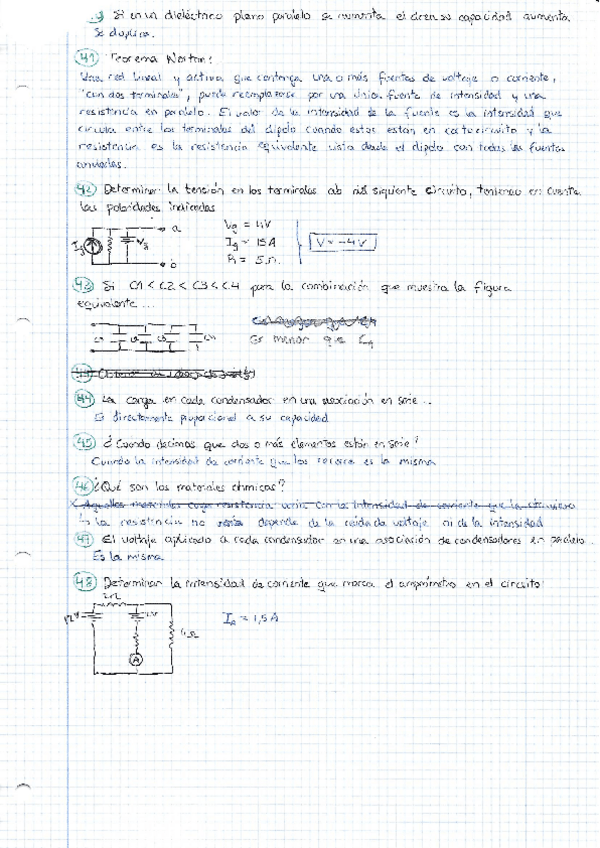 Si en un dieléctrico plano paralelo se aumenta el área su capacidad aumenta
Se duplica.
41 Teorema Norton:
Una red lineal y activa que contenga una o más fuentes de voltaje o corriente,
"con dos terminales", puede reemplazarse por una única fuente de intensidad y una
resistencia en paralelo. El valor de la intensidad de la fuente es la intensidad que
circula entre los terminales del dipolo cuando estos están en cortocircuito y la
resistencia es la resistencia equivalente vista desde el dipolo con todas las fuentes
anuladas.
42 Determinar la tensión en los terminales ab del siguiente circuito, teniendo en cuenta
las polaridades indicadas
Ig Vg a b
Vg = 4V
Ig = 15A
R = 5Ω
V = -4V
43 Si C1 < C2 < C3 < C4 para la combinación que muestra la figura
equivalente...
C1 C2 C3 C4
Es menor que C4
44 La carga en cada condensador en una asociación en serie...
Es directamente proporcional a su capacidad
45 ¿Cuando decimos que dos o más elementos están en serie?
Cuando la intensidad de corriente que los recorre es la misma
46 ¿Qué son los materiales ohmicos?
x Aquellos materiales cuya resistencia varía con la intensidad de corriente que la atraviesa
La resistencia no depende de la caída de voltaje ni de la intensidad
47 El voltaje aplicado a cada condensador en una asociación de condensadores en paralelo...
Es la misma
48 Determinar la intensidad de corriente que marca el amperímetro en el circuito
2Ω
12V
A
4Ω
Ia = 1,5A